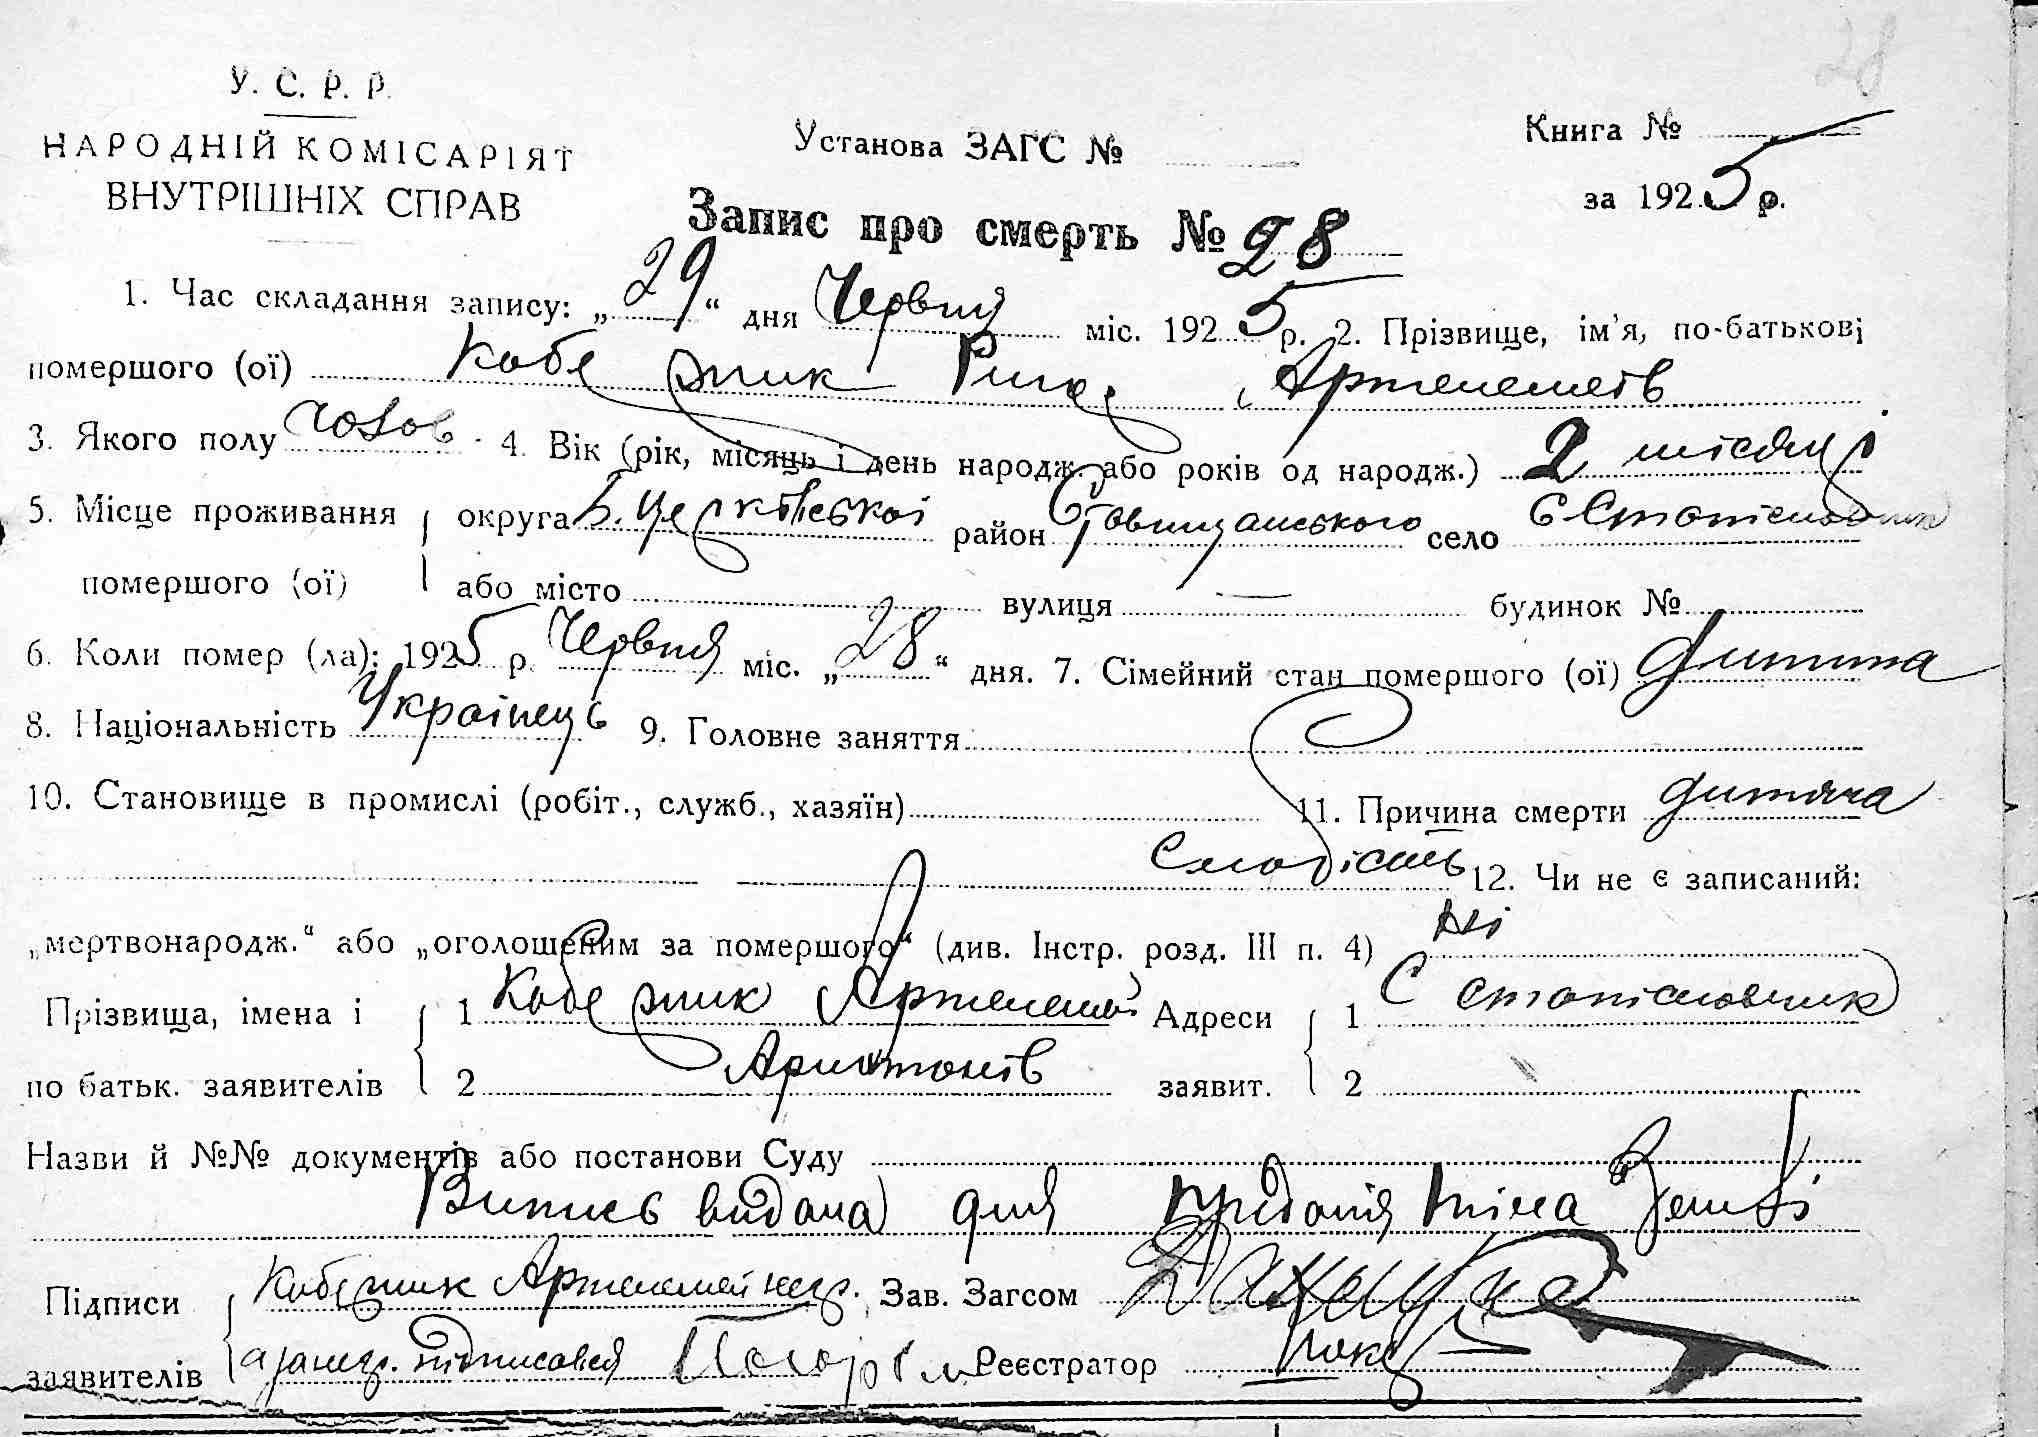 28
У. С. Р. Р.
НАРОДНІЙ КОМІСАРІЯТ
ВНУТРІШНІХ СПРАВ
Установа ЗАГС №
Книга №
за 1925 р.
Запис про смерть № 28
1. Час складання запису: „29“ дня Червня міс. 1925 р. 2. Прізвище, ім’я, по-батькові
помершого (ої) Кобе
3. Якого полу чолов. 4. Вік (рік, місяць і день народж. або років од народж.) 2 місяці
5. Місце проживання округа Б.Церківської район село
помершого (ої) або місто вулиця — будинок №
6. Коли помер (ла): 1925 р. Червня міс. „28“ дня. 7. Сімейний стан помершого (ої) дитина
8. Національність Українець 9. Головне заняття
10. Становище в промислі (робіт., служб., хазяїн) 11. Причина смерти дитяча
слабість 12. Чи не є записаний:
„мертвонародж.“ або „оголошеним за помершого“ (див. Інстр. розд. III п. 4) Ні
Прізвища, імена і 1 Адреси 1 С
по батьк. заявителів 2 заявит. 2
Назви й №№ документів або постанови Суду
Випись видана для придання тіла Землі
Підписи Зав. Загсом
заявителів підписався Реєстратор